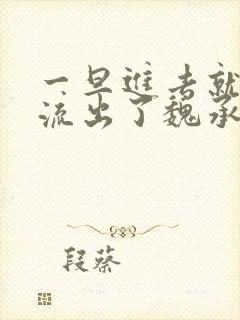 一早進去就
流出了魏承
段蔡